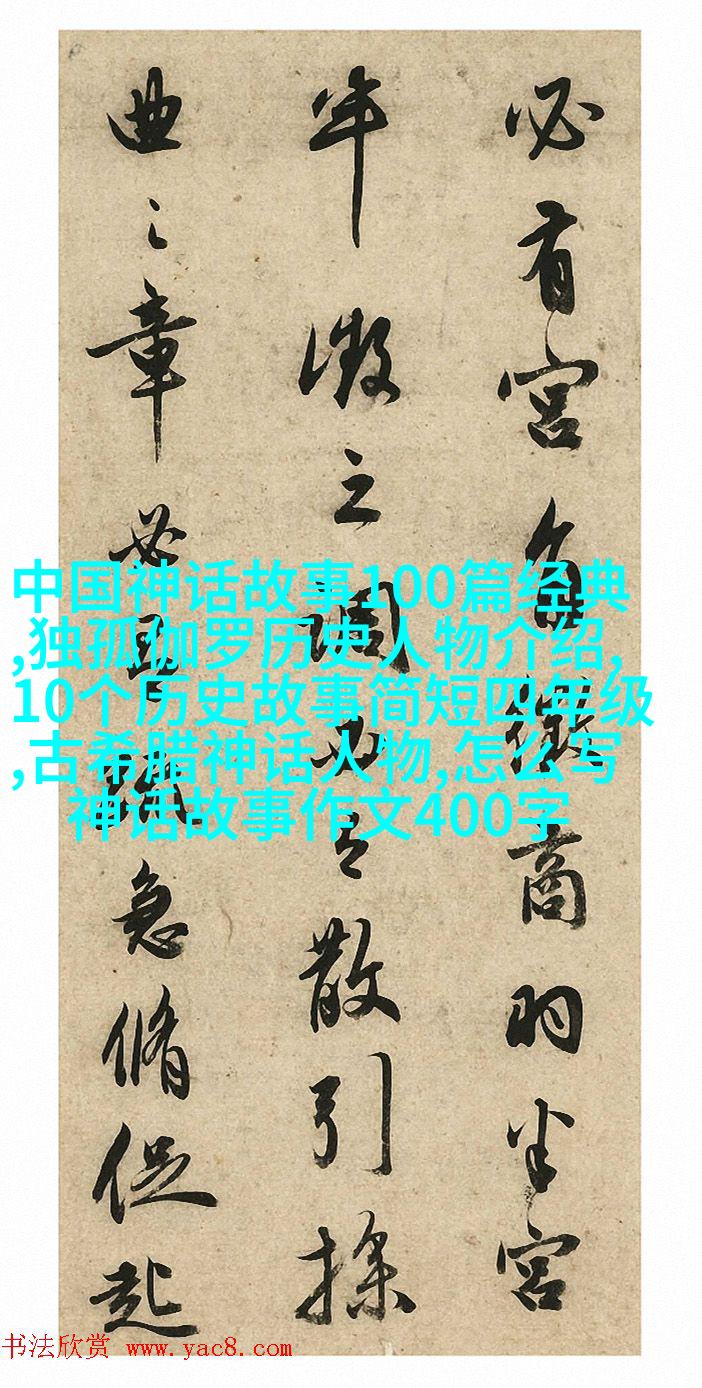 必有宫角徵商羽半宫
半徵之调必散引操
曲之章必且急脩促起
中国神话故事100篇经典
,独孤伽罗历史人物介绍,
10个历史故事简短四年级
,古希腊神话人物,怎么写
神话故事作文400字
书法欣赏 www.yac8.com